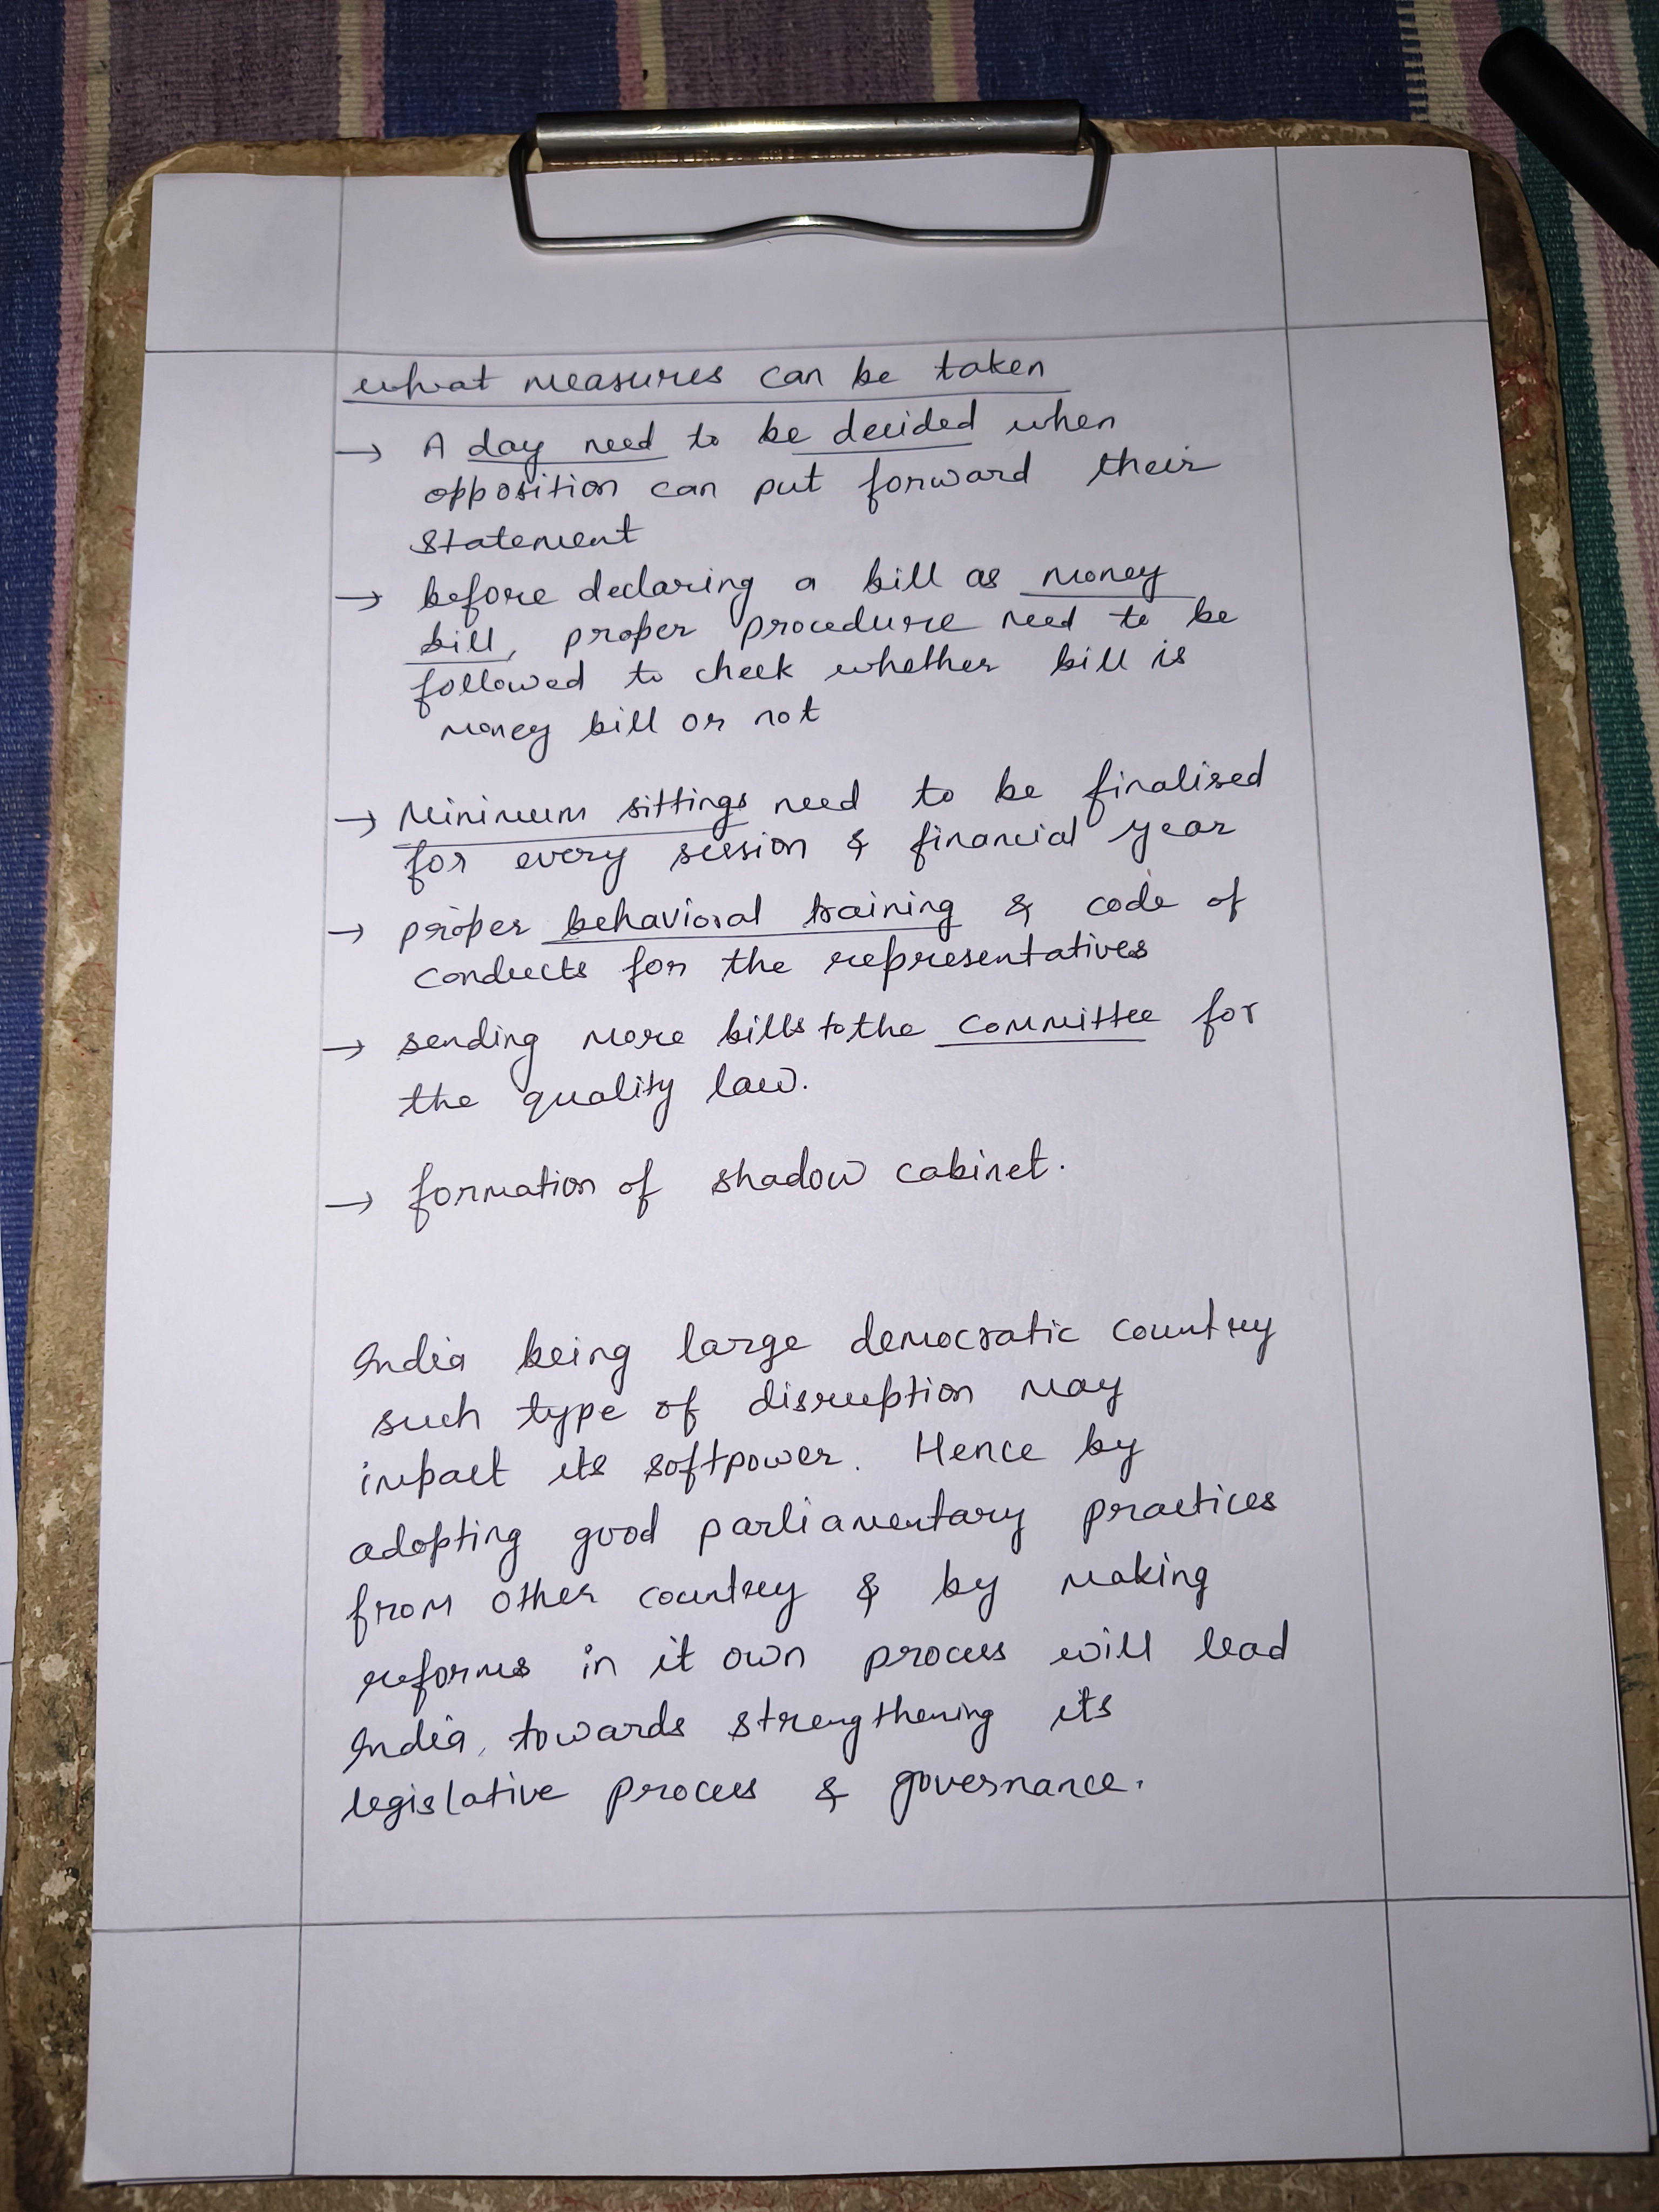 what measures can be taken
→ A day need to be decided when
opposition can put forward their
statement
→ before declaring a bill as money
bill, proper procedure need to be
followed to check whether bill is
money bill or not
→ Minimum sittings need to be finalised
for every session & financial year
→ proper behavioral training & code of
conducts for the representatives
→ sending more bills to the committee for
the quality law.
→ formation of shadow cabinet.
India being large democratic country
such type of disruption may
impact its softpower. Hence by
adopting good parliamentary practices
from other country & by making
reforms in it own process will lead
India, towards strengthening its
legislative process & governance.